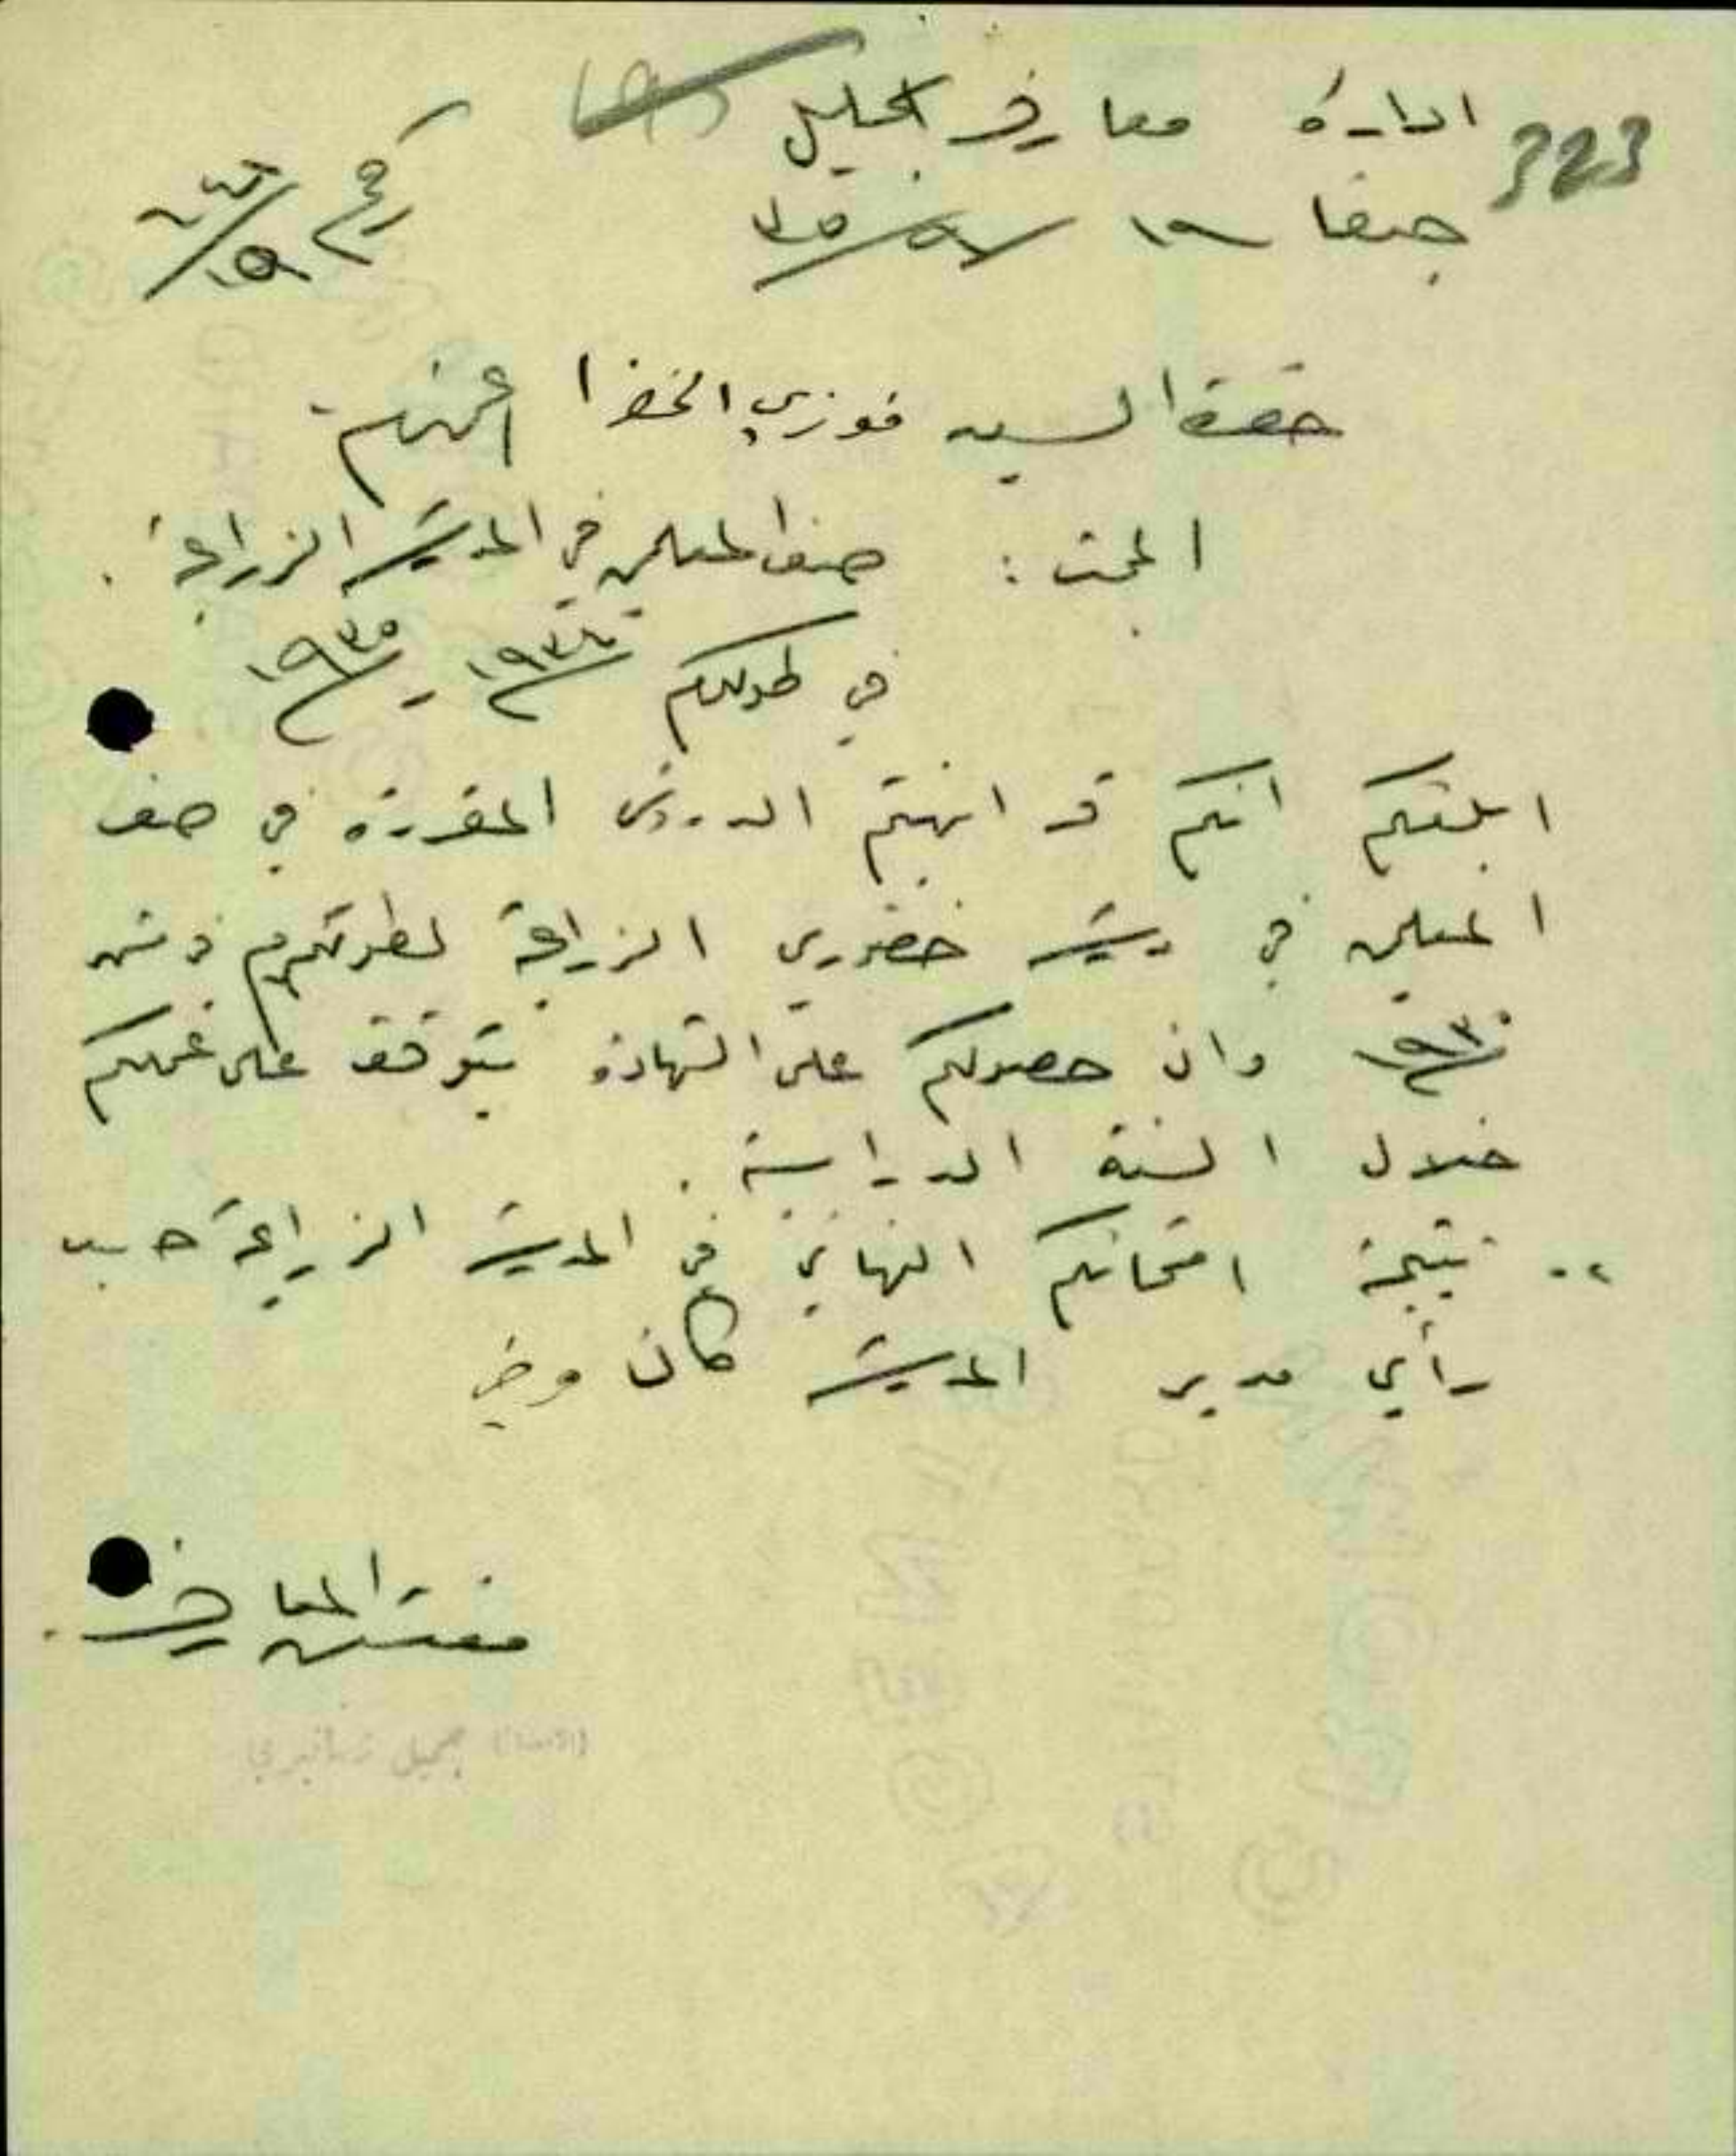 323
ادارة معارف الجليل
حيفا ١٩/٩/٣٥
رقم
حضرة السيد فوزي الخضرا المحترم
البحث : صف المعلمين في المدرسة الزراعية .
في طولكرم ١٩٣٤ - ١٩٣٥
ابلغكم انكم قد انهيتم الدروس المقررة في صف
المعلمين في مدرسة خضوري الزراعية لطولكرم في
وان حصولكم على الشهادة يتوقف على عملكم
خلال السنة الدراسية .
٢- نتيجة امتحانكم النهائي في المدرسة الزراعية حسب
رأي مدير المدرسة كان مرضي
مفتش المعارف
(الامضاء) جميل